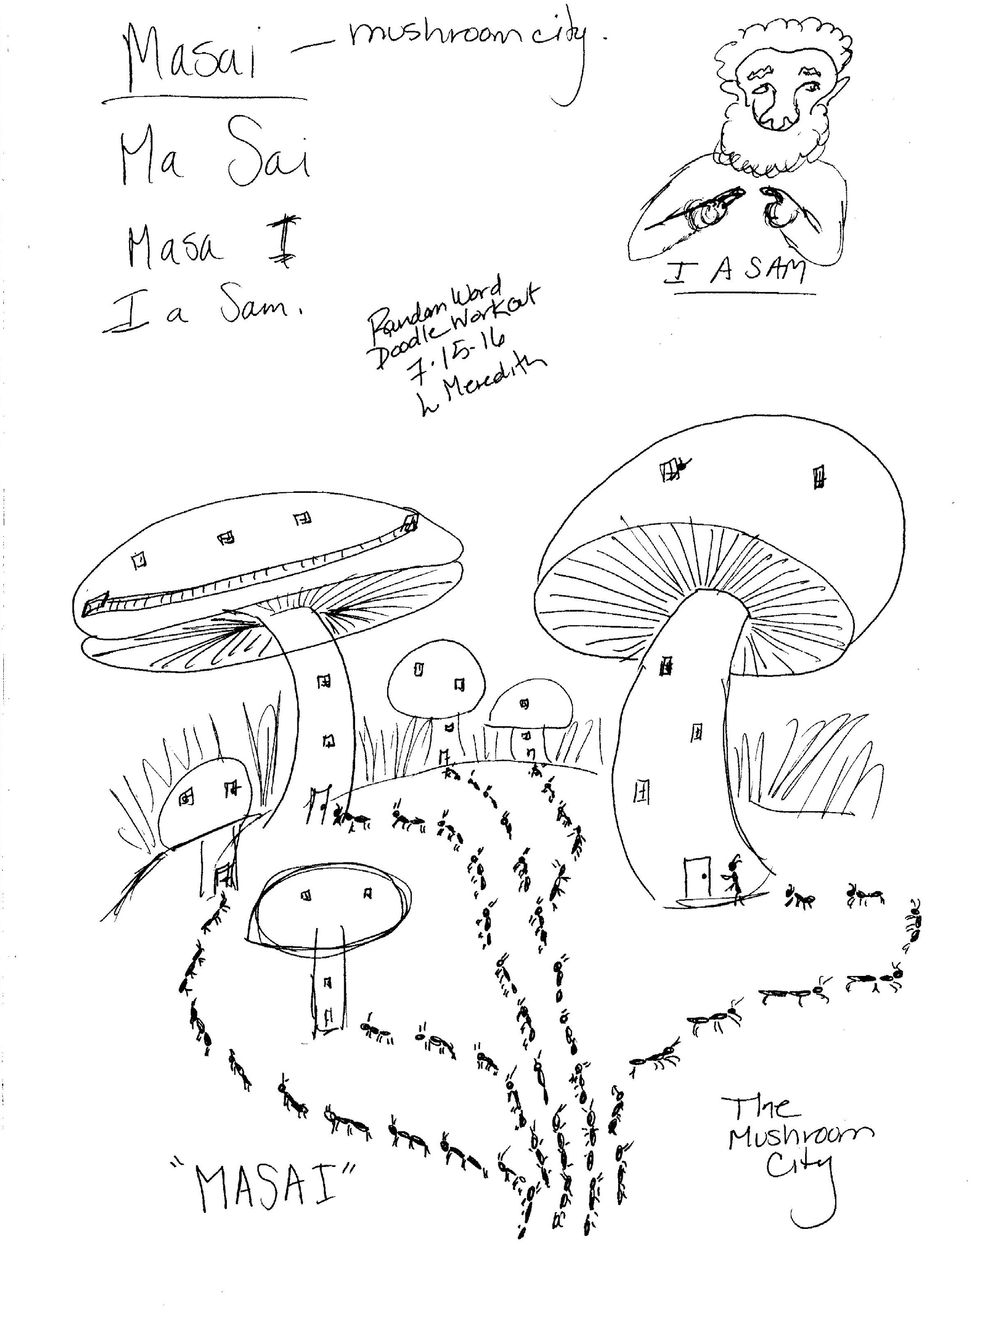 Masai — mushroom city.
Ma Sai
Masa I
I a Sam.
I A SAM
Random Word
Doodle Workout
7-15-16
L Meredith
"MASAI"
The
Mushroom
City